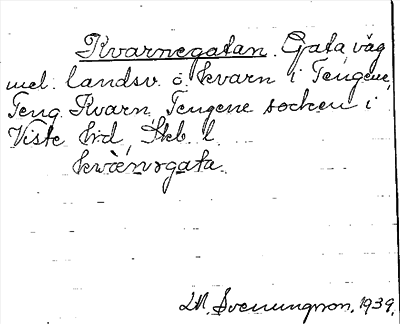 Kvarnegatan. Gata, väg
mel. landsv. o. kvarn i Tengene,
Teng. Kvarn, Tengene socken i
Viste hrd, Skb. l.
kwænrgata.
M. Svenungsson. 1939.